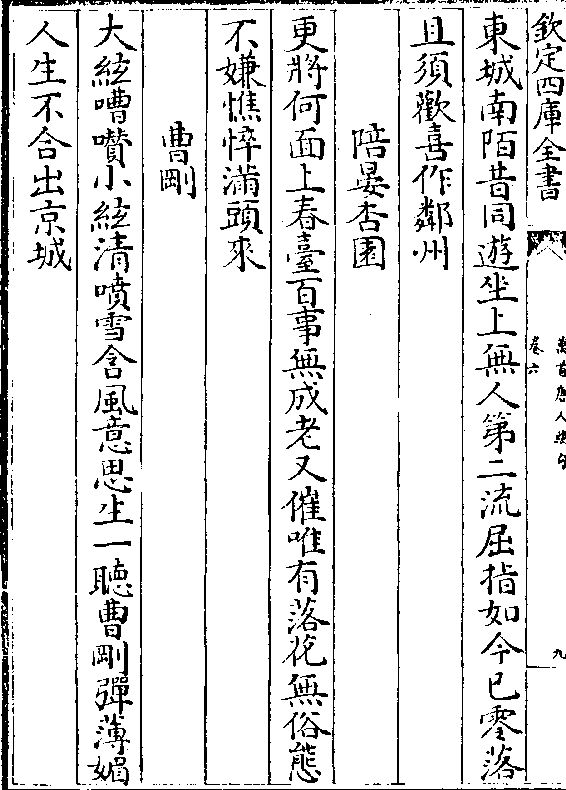 欽定四庫全書
萬首唐人絶句
卷六
九
東城南陌昔同遊坐上無人第二流屈指如今已零落
且須歡喜作鄰州
陪晏杏園
更將何面上春臺百事無成老又催唯有落花無俗態
不嫌憔悴滿頭來
曹剛
大絃嘈囋小絃清噴雪含風意思生一聽曹剛彈薄媚
人生不合出京城